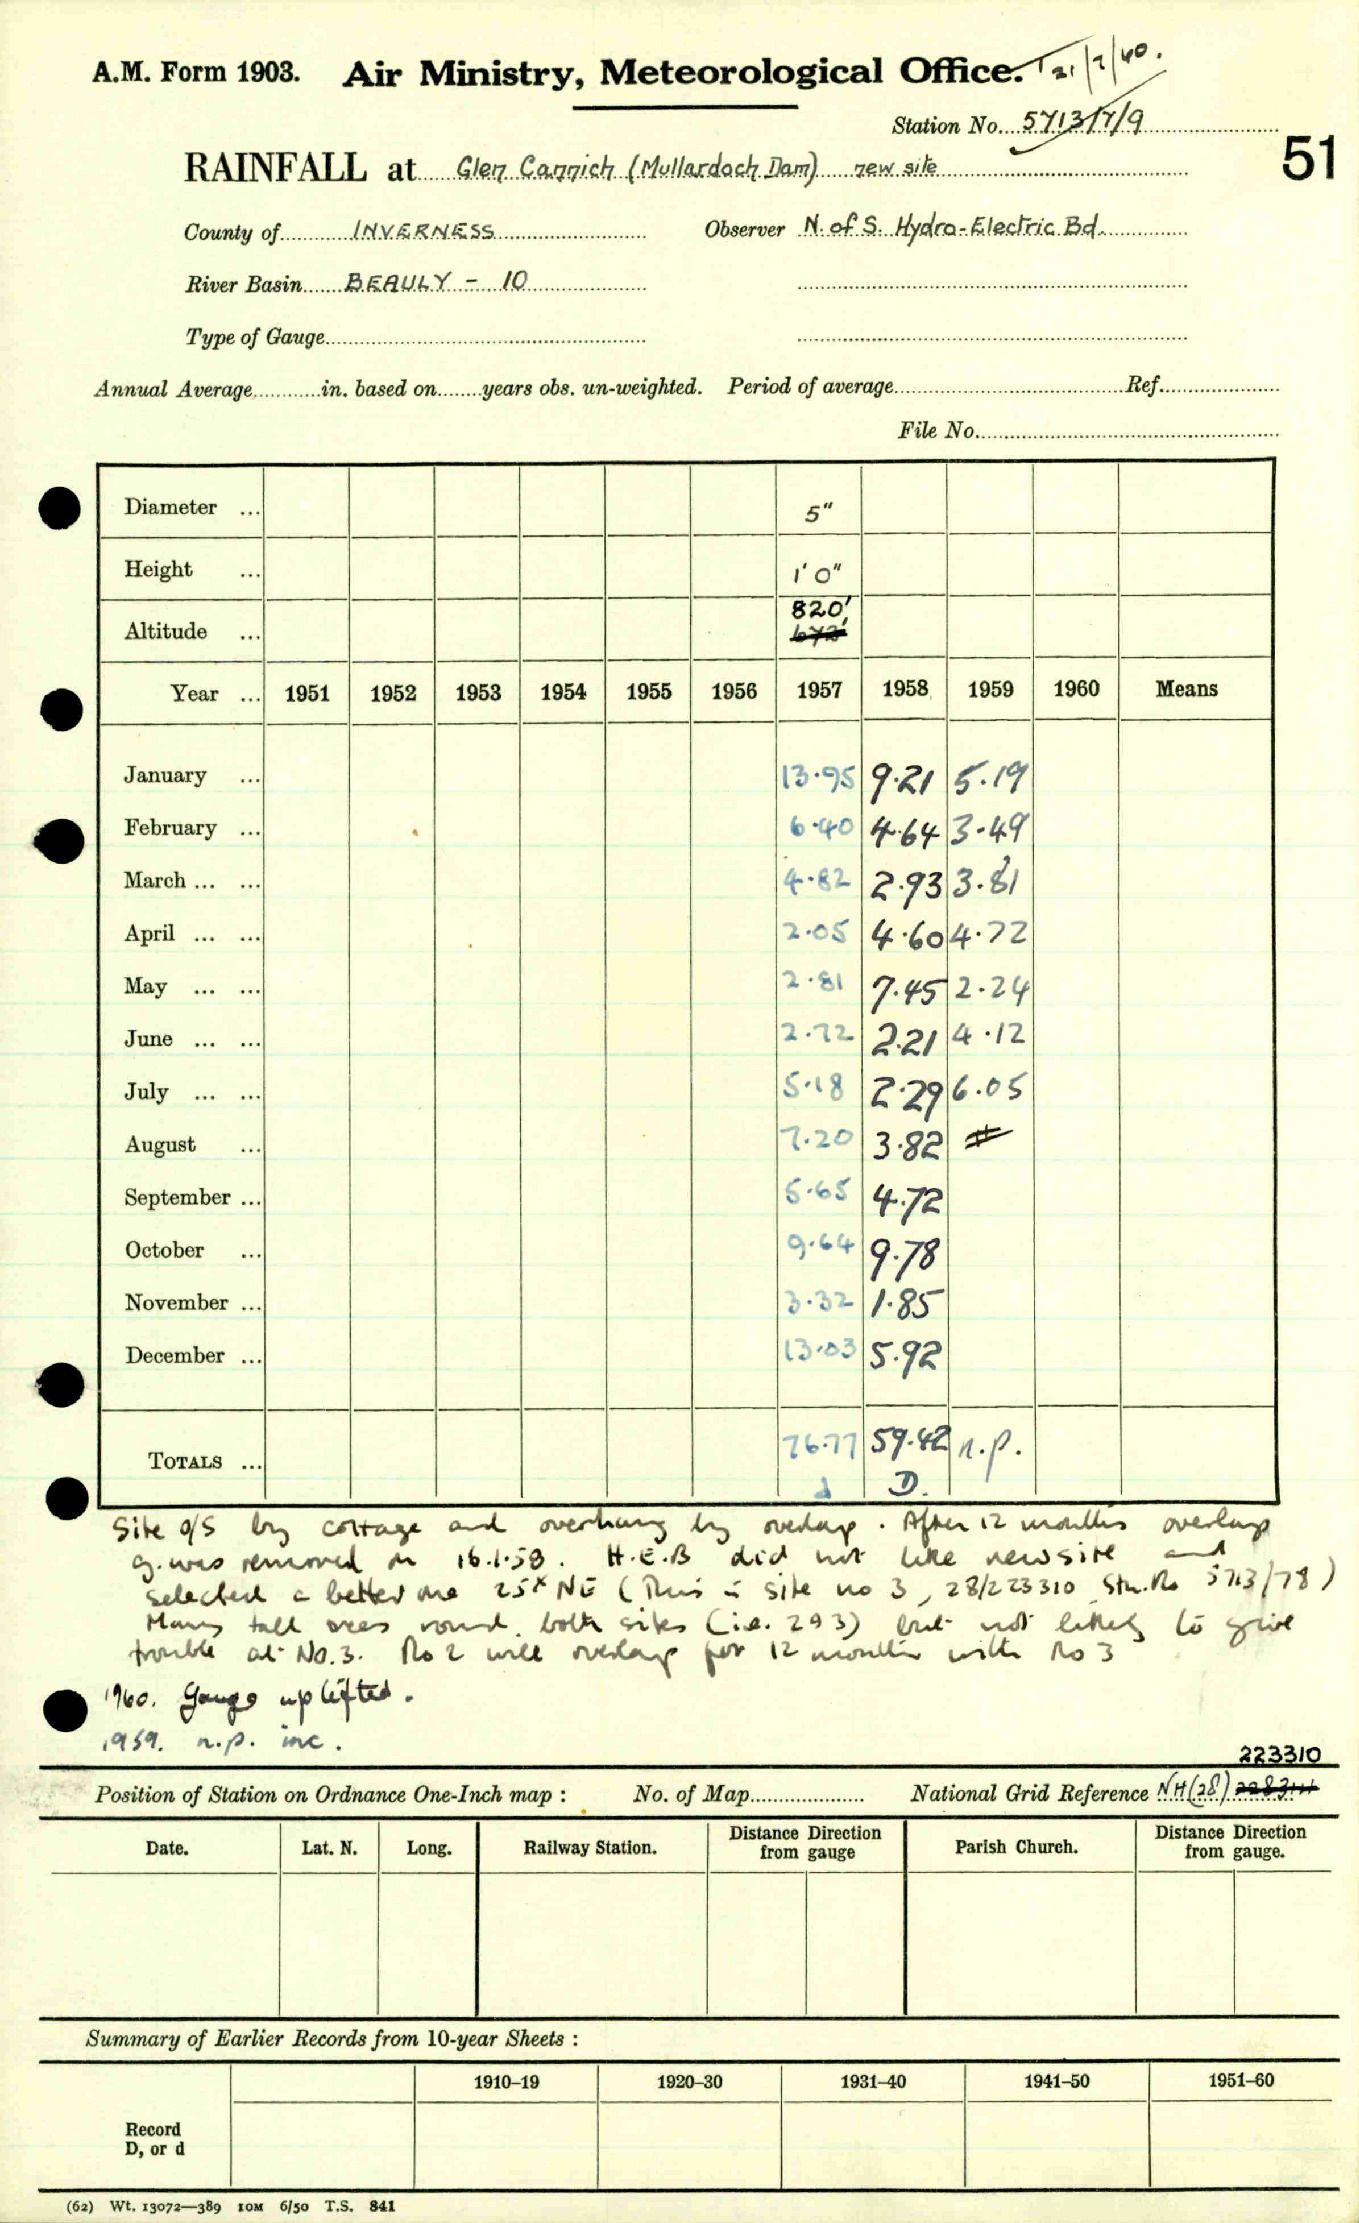 A.M. Form 1903. Air Ministry, Meteorological Office. 21/7/60.
Station No. 5713/7/9
51
RAINFALL at Glen Cannich (Mullardoch Dam) new site
County of INVERNESS Observer N. of S. Hydro-Electric Bd.
River Basin BEAULY - 10
Type of Gauge
Annual Average in. based on years obs. un-weighted. Period of average Ref.
File No.
Diameter ... 5"
Height ... 1' 0"
820'
Altitude ... 672'
Year ... 1951 1952 1953 1954 1955 1956 1957 1958 1959 1960 Means
January ... 13.95 9.21 5.19
February ... 6.40 4.64 3.49
March ... ... 4.82 2.93 3.81
April ... ... 2.05 4.60 4.72
May ... ... 2.81 7.45 2.24
June ... ... 2.72 2.21 4.12
July ... ... 5.18 2.29 6.05
August ... 7.20 3.82 #
September ... 5.65 4.72
October ... 9.64 9.78
November ... 3.32 1.85
December ... 13.03 5.92
TOTALS ... 76.77 59.42 n.p.
d D.
Site o/s by cottage and overhung by overlap. After 12 months overlap
g. was removed on 16.1.58. H.E.B did not like new site and
selected a better one 25x NE (This is site no 3, 28/223310 Stn. No 5713/78)
Many tall trees round both sites (i.e. 2 & 3) but not likely to give
trouble at No. 3. No 2 will overlap for 12 months with No 3
1960. Gauge uplifted.
1959. n.p. inc.
223310
Position of Station on Ordnance One-Inch map : No. of Map National Grid Reference NH(28)
Date. Lat. N. Long. Railway Station. Distance Direction from gauge Parish Church. Distance Direction from gauge.
Summary of Earlier Records from 10-year Sheets :
1910–19 1920–30 1931–40 1941–50 1951–60
Record
D, or d
(62) Wt. 13072—389 10M 6/50 T.S. 841